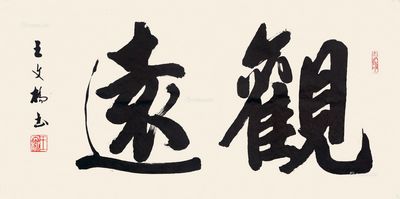 觀遠
王文楊書